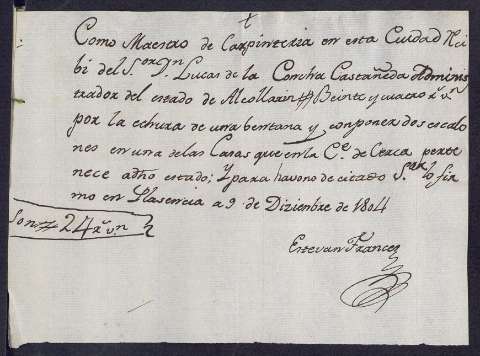 Como Maestro de Carpinteria en esta Ciudad Rci
bi del S.or D.n Lucas de la Concha Castañeda Adminis
trador del estado de Alcollarin # Beinte y cuatro r.s v.n
por la echura de una bentana y conponer dos escalo
nes en una delas Casas que en la C.e de Cerca perte
nece adho estado; Y para havono de citado S.or lo fir
mo en Plasencia a 9 de Diziembre de 1804
Son # 24 r.s v.n
Estevan Frances